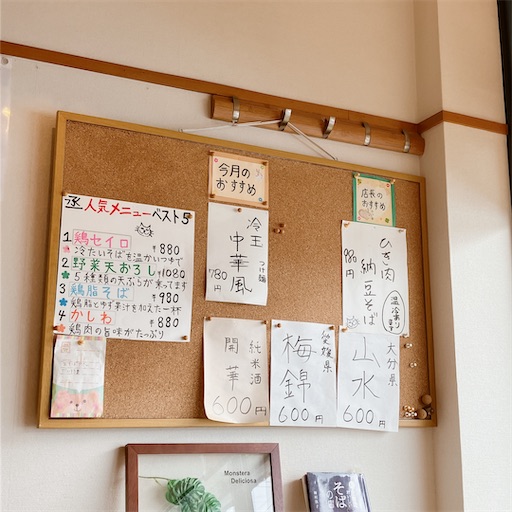 人気メニューベスト5
1 鶏セイロ ¥880
冷たいそばを温かいつゆで
2 野菜天おろし ¥1080
5種類の天ぷらが乗ってます
3 鶏脂そば ¥980
鶏脂とゆず果汁を加えた一杯
4 かしわ ¥880
鶏肉の旨味がたっぷり
今月の
おすすめ
冷玉
中華風
つけ麺
780円
店長の
おすすめ
ひき肉
納豆そば
980円
温冷あり
純米酒
開華
600円
愛媛県
梅錦
600円
大分県
山水
600円
Monstera
Deliciosa
そば